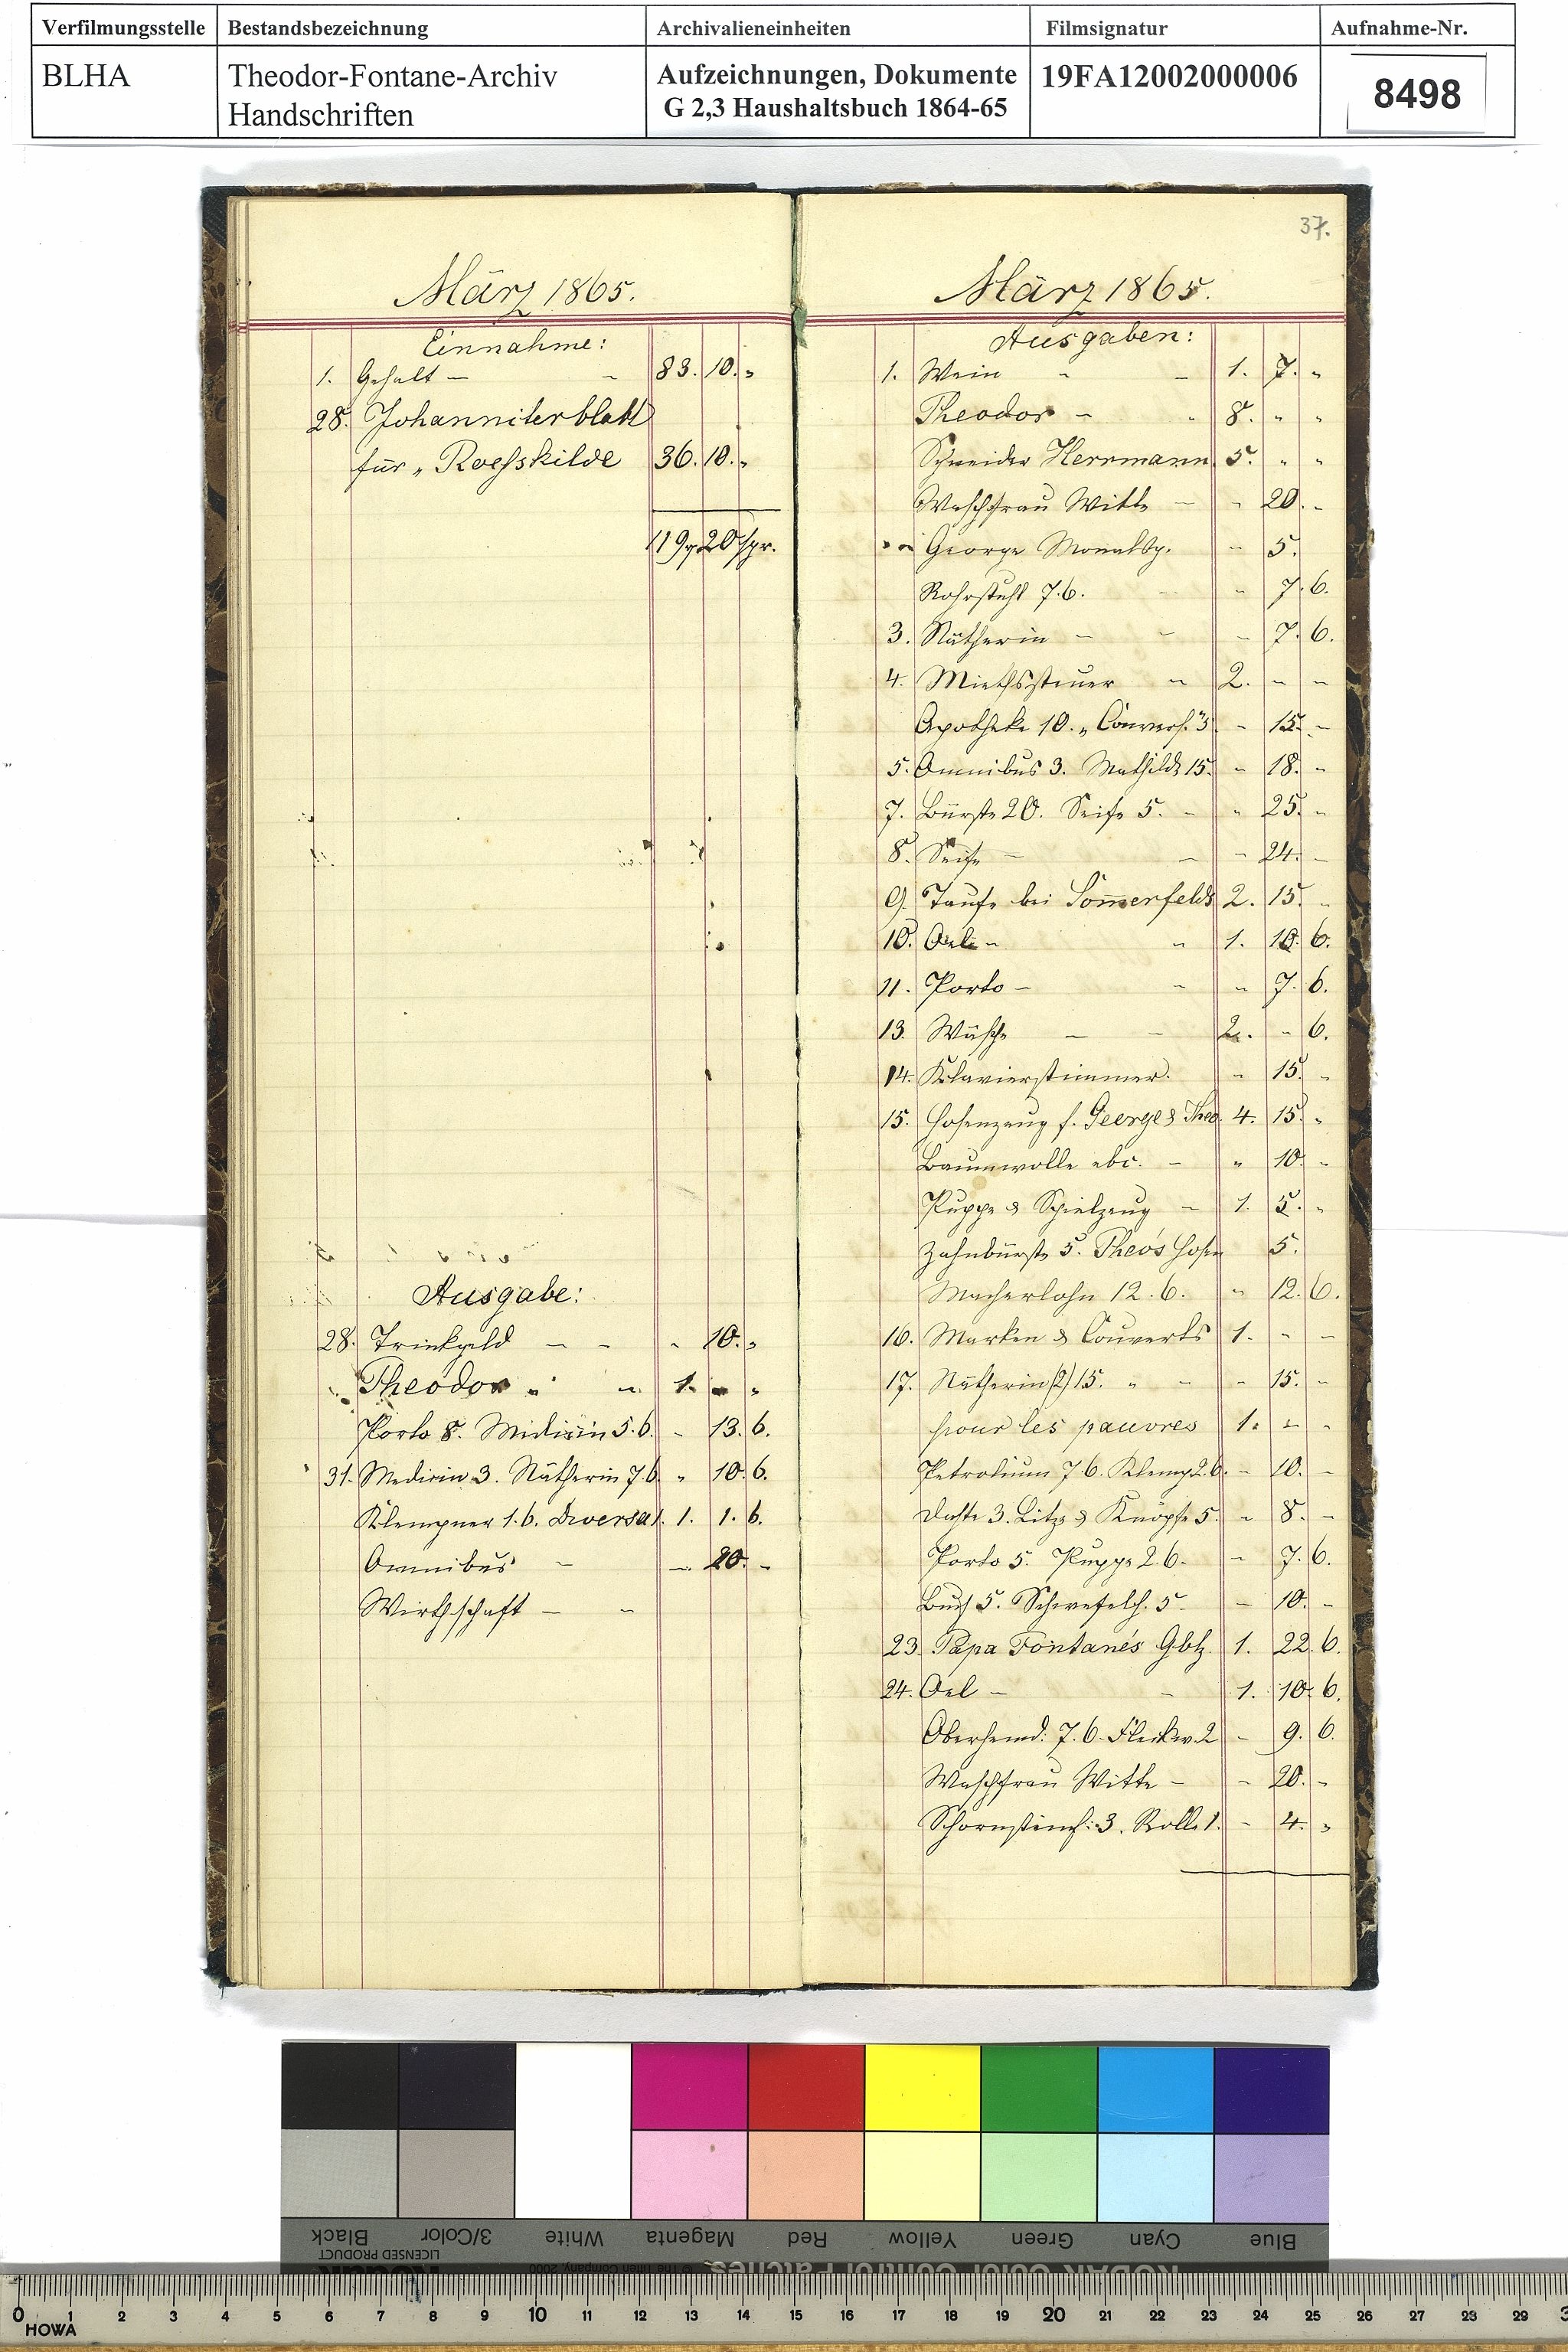 Verfilmungsstelle Bestandsbezeichnung Archivalieneinheiten Filmsignatur Aufnahme-Nr.
BLHA Theodor-Fontane-Archiv Handschriften Aufzeichnungen, Dokumente G 2,3 Haushaltsbuch 1864-65 19FA12002000006 8498
März 1865.
Einnahme:
1. Gehalt - - 83. 10. "
28. Johanniterblatt
für "Roeskilde 36. 10. "
119 r 20 sgr.
Ausgabe:
28. Trinkgeld - - " 10. "
" Theodor " " 1. " "
Porto 8. Medizin 5.6. - 13. 6.
31. Medicin 3. Nätherin 7.6. " 10. 6.
Klempner 1.6. Diversa 1. 1. 1. 6.
Omnibus - - 20. -
Wirthschaft - -
37.
März 1865.
Ausgaben:
1. Wein - - 1. 7. "
Theodor - " 8. " "
Schneider Herrmann 5. " "
Waschfrau Witte - - 20. -
George Monatsg. - 5.
Rohrstuhl 7.6. - - 7. 6.
3. Nätherin - - - 7. 6.
4. Miethssteuer - 2. - -
Apotheke 10. "Couvers." 5 - 15. -
5. Omnibus 3. Mathilde 15. - 18. -
7. Bürste 20. Seife 5. - " 25. -
8. Seife - - - 24. -
9. Taufe bei Sommerfelds 2. 15. -
10. Oel - - 1. 10. 6.
11. Porto - - - 7. 6.
13. Wäsche - - 2. - 6.
14. Klavierstimmer. - 15. -
15. Hosenzeug f. George & Theo. 4. 15. "
Baumwolle etc. - " 10. -
Puppe & Spielzeug - 1. 5. "
Zahnbürste 5. Theo's Hosen 5.
Macherlohn 12.6. " 12. 6.
16. Marken & Couverts 1. - -
17. Nätherin (2) 15. " - - 15. -
pour les pauvres 1. - -
Petroleum 7.6. Klemp. 2.6. - 10. -
Dochte 3. Litze & Knöpfe 5. - 8. -
Porto 5. Puppe 2.6. - 7. 6.
5. Schwefelh. 5. - 10. -
23. Papa Fontane's Gbtg. 1. 22. 6.
24. Oel - - 1. 10. 6.
Oberhemd: 7.6. Fleckw. 2 - 9. 6.
Waschfrau Witte - - 20. -
Schornsteinf: 3. Rolle 1. - 4. "
Black 3/Color White Magenta Red Yellow Green Cyan Blue
LICENSED PRODUCT
Kodak © The Tiffen Company, 2000 KODAK Color Control Patches
0 1 2 3 4 5 6 7 8 9 10 11 12 13 14 15 16 17 18 19 20 21 22 23 24 25 26 27 28 29 3
HOWA